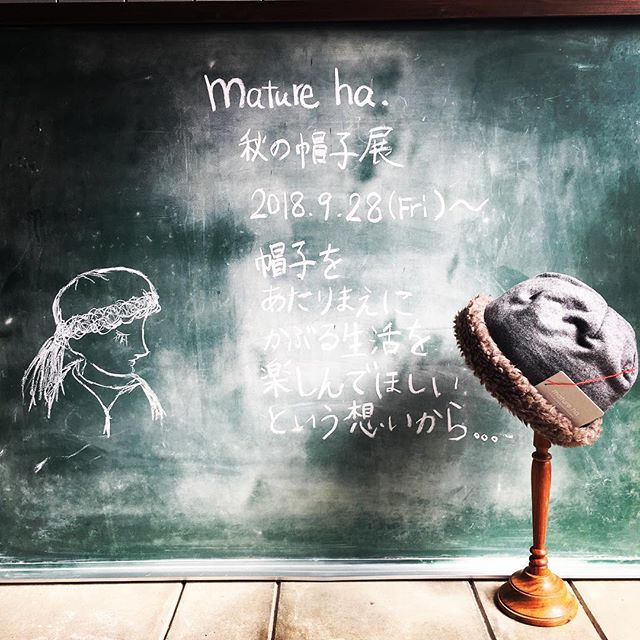 mature ha.
秋の帽子展
2018.9.28(Fri)〜
帽子を
あたりまえに
かぶる生活を
楽しんでほしい
という想いから...